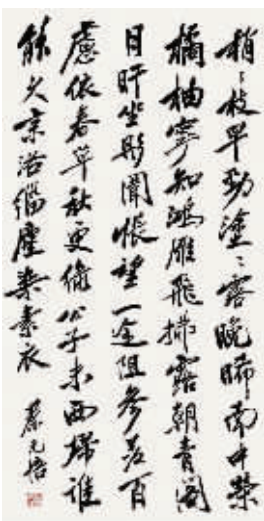 梢々枝早勁塗々露晚晞南中榮
橘柚寧知鴻雁飛拂露朝青閣
日旰坐彤闈悵望一途阻參差百
慮依春草秋更綠公子未西歸誰
能久京洛緇塵染素衣